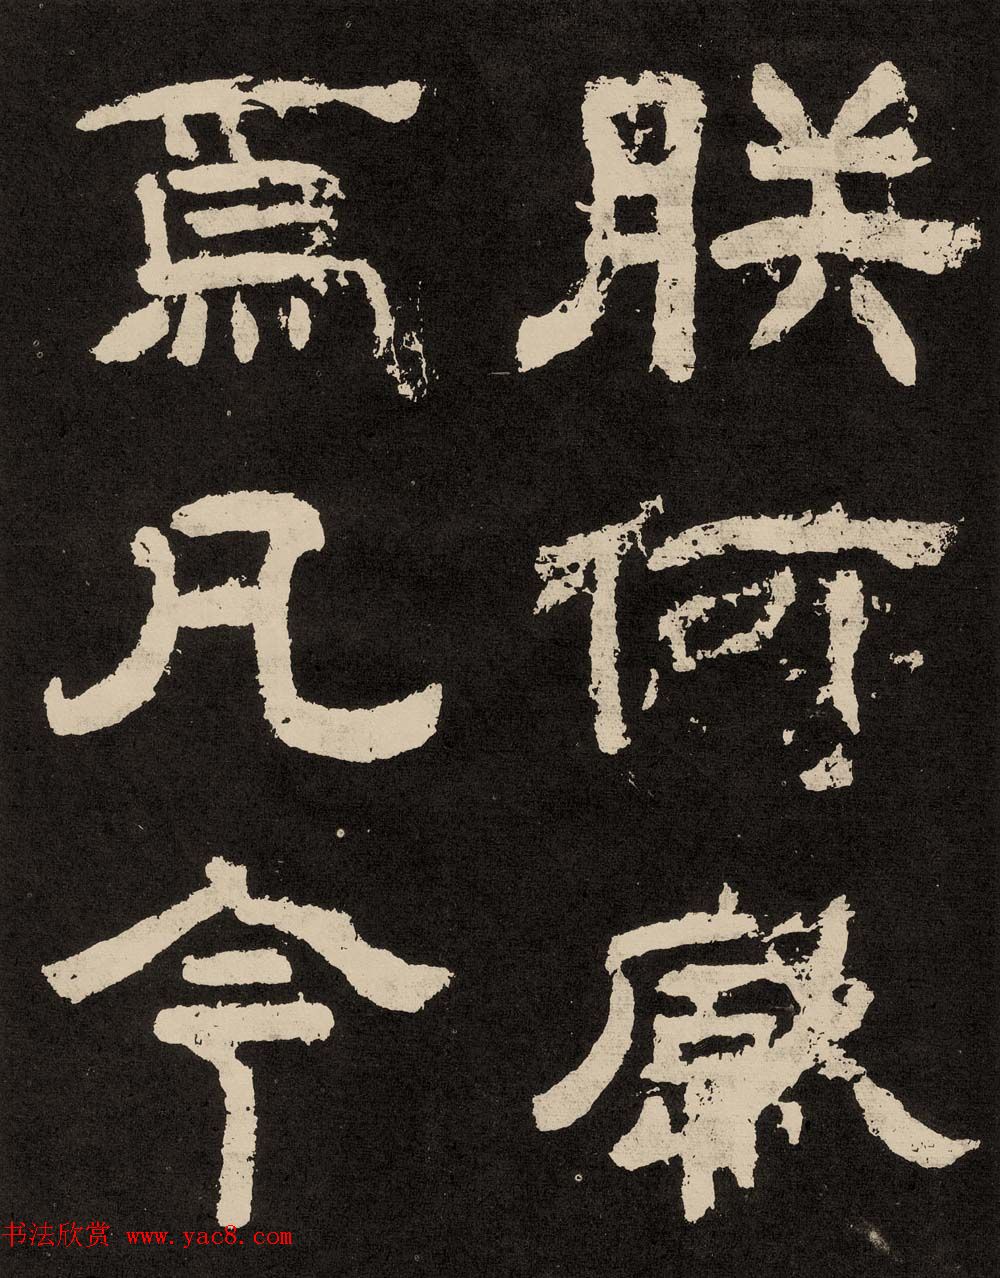 朕何感
焉凡今
书法欣赏 www.yac8.com